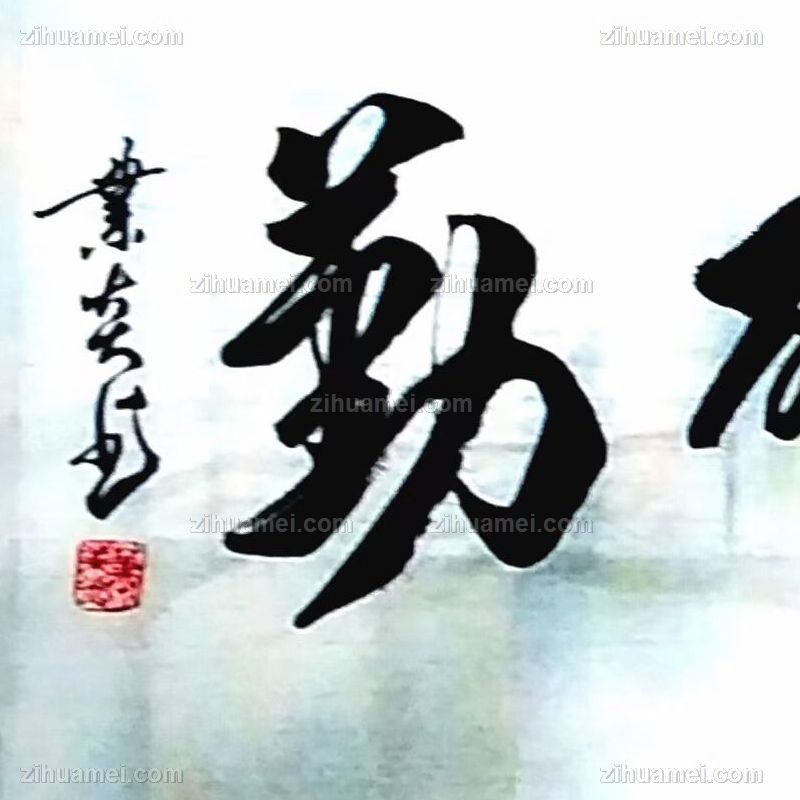 勤
業炎书
zihuamei.com
zihuamei.com
zihuamei.com
zihuamei.com
zihuamei.com
zihuamei.com
zihuamei.com
zihuamei.com
zihuamei.com